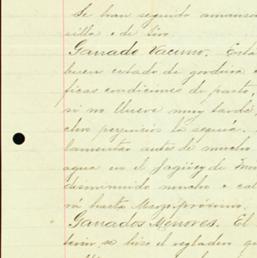 Se han seguido amansa
silla e de tiro.
Ganado Vacuno. Está
buen estado de gordura e
ficas condiciones de pasto,
si no llueve muy tarde
chos perjuicios la sequía.
lamentar antes de mucho
agua en el jagüey de
disminuido mucho e cal
rá hasta Marzo próximo.
Ganados Menores. El
se hizo el arreglado que